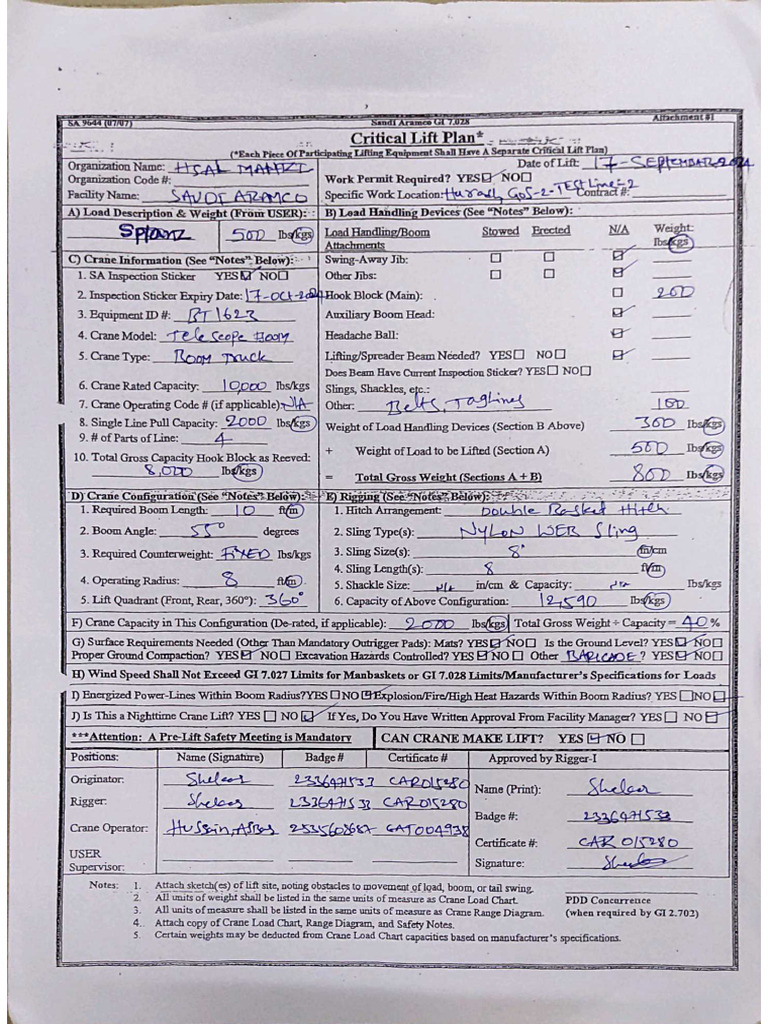 SA 9644 (07/07) Saudi Aramco GI 7.028 Attachment #1
Critical Lift Plan*
(*Each Piece Of Participating Lifting Equipment Shall Have A Separate Critical Lift Plan)
Organization Name: Date of Lift: 17-SEPTEMBER-2024
Organization Code #: Work Permit Required? YES NO
Facility Name: SAUDI ARAMCO Specific Work Location: GOS-2-TEST Line-2 Contract #:
A) Load Description & Weight (From USER):
500 lbs/kgs
B) Load Handling Devices (See "Notes" Below):
Load Handling/Boom Stowed Erected N/A Weight:
Attachments lbs/kgs
Swing-Away Jib:
Other Jibs:
Hook Block (Main): 200
Auxiliary Boom Head:
Headache Ball:
Lifting/Spreader Beam Needed? YES NO
Does Beam Have Current Inspection Sticker? YES NO
Slings, Shackles, etc.:
Other: Belts, Taglines 100
Weight of Load Handling Devices (Section B Above) 300 lbs/kgs
+ Weight of Load to be Lifted (Section A) 500 lbs/kgs
= Total Gross Weight (Sections A + B) 800 lbs/kgs
C) Crane Information (See "Notes" Below):
1. SA Inspection Sticker YES NO
2. Inspection Sticker Expiry Date: 17-OCT-2024
3. Equipment ID #: BT1623
4. Crane Model: TeleScope Boom
5. Crane Type: Boom Truck
6. Crane Rated Capacity: 10,000 lbs/kgs
7. Crane Operating Code # (if applicable) N/A
8. Single Line Pull Capacity: 2000 lbs/kgs
9. # of Parts of Line: 4
10. Total Gross Capacity Hook Block as Reeved:
8,000 lbs/kgs
D) Crane Configuration (See "Notes" Below):
1. Required Boom Length: 10 ft/m
2. Boom Angle: 55° degrees
3. Required Counterweight: FIXED lbs/kgs
4. Operating Radius: 8 ft/m
5. Lift Quadrant (Front, Rear, 360°): 360°
E) Rigging (See "Notes" Below):
1. Hitch Arrangement: Double Basket Hitch
2. Sling Type(s): NYLON WEB Sling
3. Sling Size(s): 8" in/cm
4. Sling Length(s): 8 ft/m
5. Shackle Size: N/A in/cm & Capacity: N/A lbs/kgs
6. Capacity of Above Configuration: 12,590 lbs/kgs
F) Crane Capacity in This Configuration (De-rated, if applicable): 2000 lbs/kgs Total Gross Weight ÷ Capacity = 40 %
G) Surface Requirements Needed (Other Than Mandatory Outrigger Pads): Mats? YES NO Is the Ground Level? YES NO
Proper Ground Compaction? YES NO Excavation Hazards Controlled? YES NO Other BARICADE? YES NO
H) Wind Speed Shall Not Exceed GI 7.027 Limits for Manbaskets or GI 7.028 Limits/Manufacturer's Specifications for Loads
I) Energized Power-Lines Within Boom Radius? YES NO Explosion/Fire/High Heat Hazards Within Boom Radius? YES NO
J) Is This a Nighttime Crane Lift? YES NO If Yes, Do You Have Written Approval From Facility Manager? YES NO
***Attention: A Pre-Lift Safety Meeting is Mandatory CAN CRANE MAKE LIFT? YES NO
Positions: Name (Signature) Badge # Certificate # Approved by Rigger-I
Originator: 2336471533 CAR015280
Rigger: 2336471533 CAR015280
Crane Operator: Hussain, Abbas CAT004938
USER
Supervisor:
Name (Print):
Badge #: 2336471533
Certificate #: CAR 015280
Signature:
Notes: 1. Attach sketch(es) of lift site, noting obstacles to movement of load, boom, or tail swing.
2. All units of weight shall be listed in the same units of measure as Crane Load Chart.
3. All units of measure shall be listed in the same units of measure as Crane Range Diagram.
4. Attach copy of Crane Load Chart, Range Diagram, and Safety Notes.
5. Certain weights may be deducted from Crane Load Chart capacities based on manufacturer's specifications.
PDD Concurrence
(when required by GI 2.702)